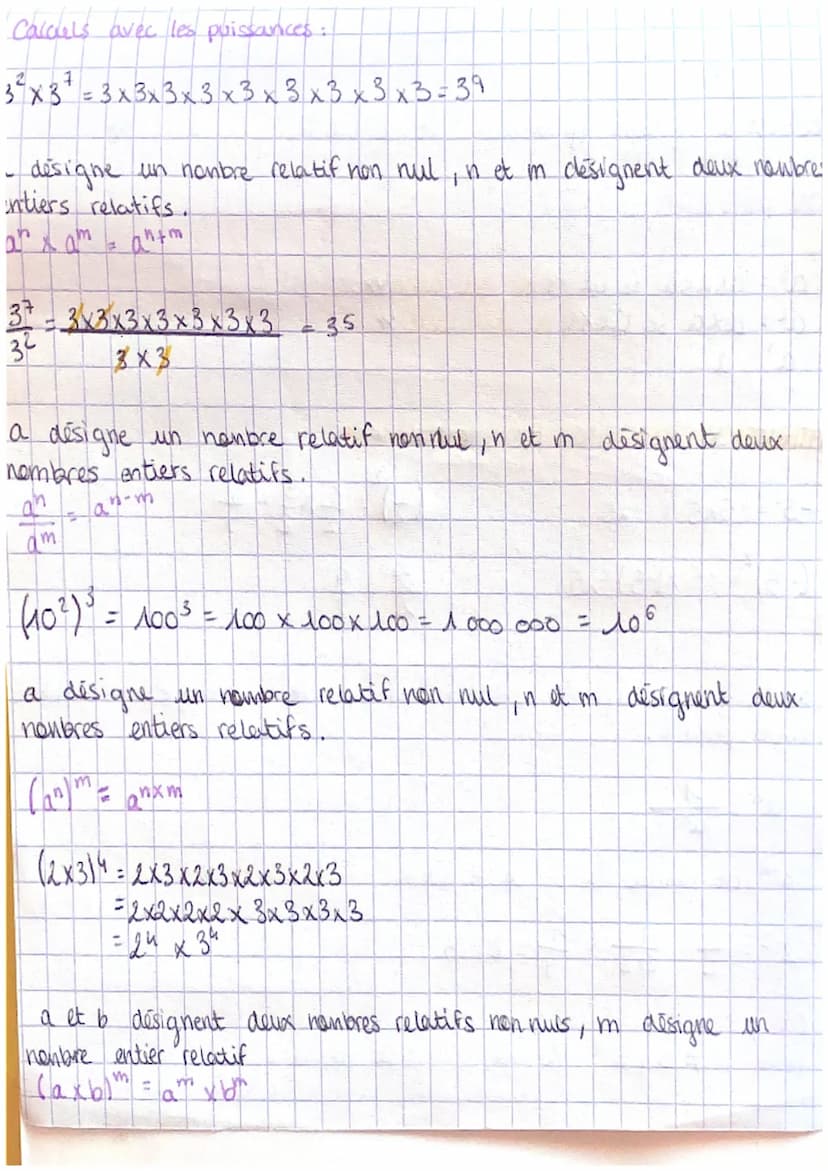 Calculs avec les puissances :
3² × 3⁷ = 3 × 3 × 3 × 3 × 3 × 3 × 3 × 3 × 3 = 3⁹
désigne un nombre relatif non nul, n et m désignent deux nombre
entiers relatifs.
aⁿ × aᵐ = aⁿ⁺ᵐ
3⁷/3² = 3×3×3×3×3×3×3 / 3×3 = 3⁵
a désigne un nombre relatif non nul, n et m désignent deux
nombres entiers relatifs.
aⁿ/aᵐ = aⁿ⁻ᵐ
(10²)³ = 100³ = 100 × 100 × 100 = 1 000 000 = 10⁶
a désigne un nombre relatif non nul, n et m désignent deux
nombres entiers relatifs.
(aⁿ)ᵐ = aⁿˣᵐ
(2×3)⁴ = 2×3×2×3×2×3×2×3
= 2×2×2×2 × 3×3×3×3
= 2⁴ × 3⁴
a et b désignent deux nombres relatifs non nuls, m désigne un
nombre entier relatif
(a×b)ᵐ = aᵐ × bᵐ